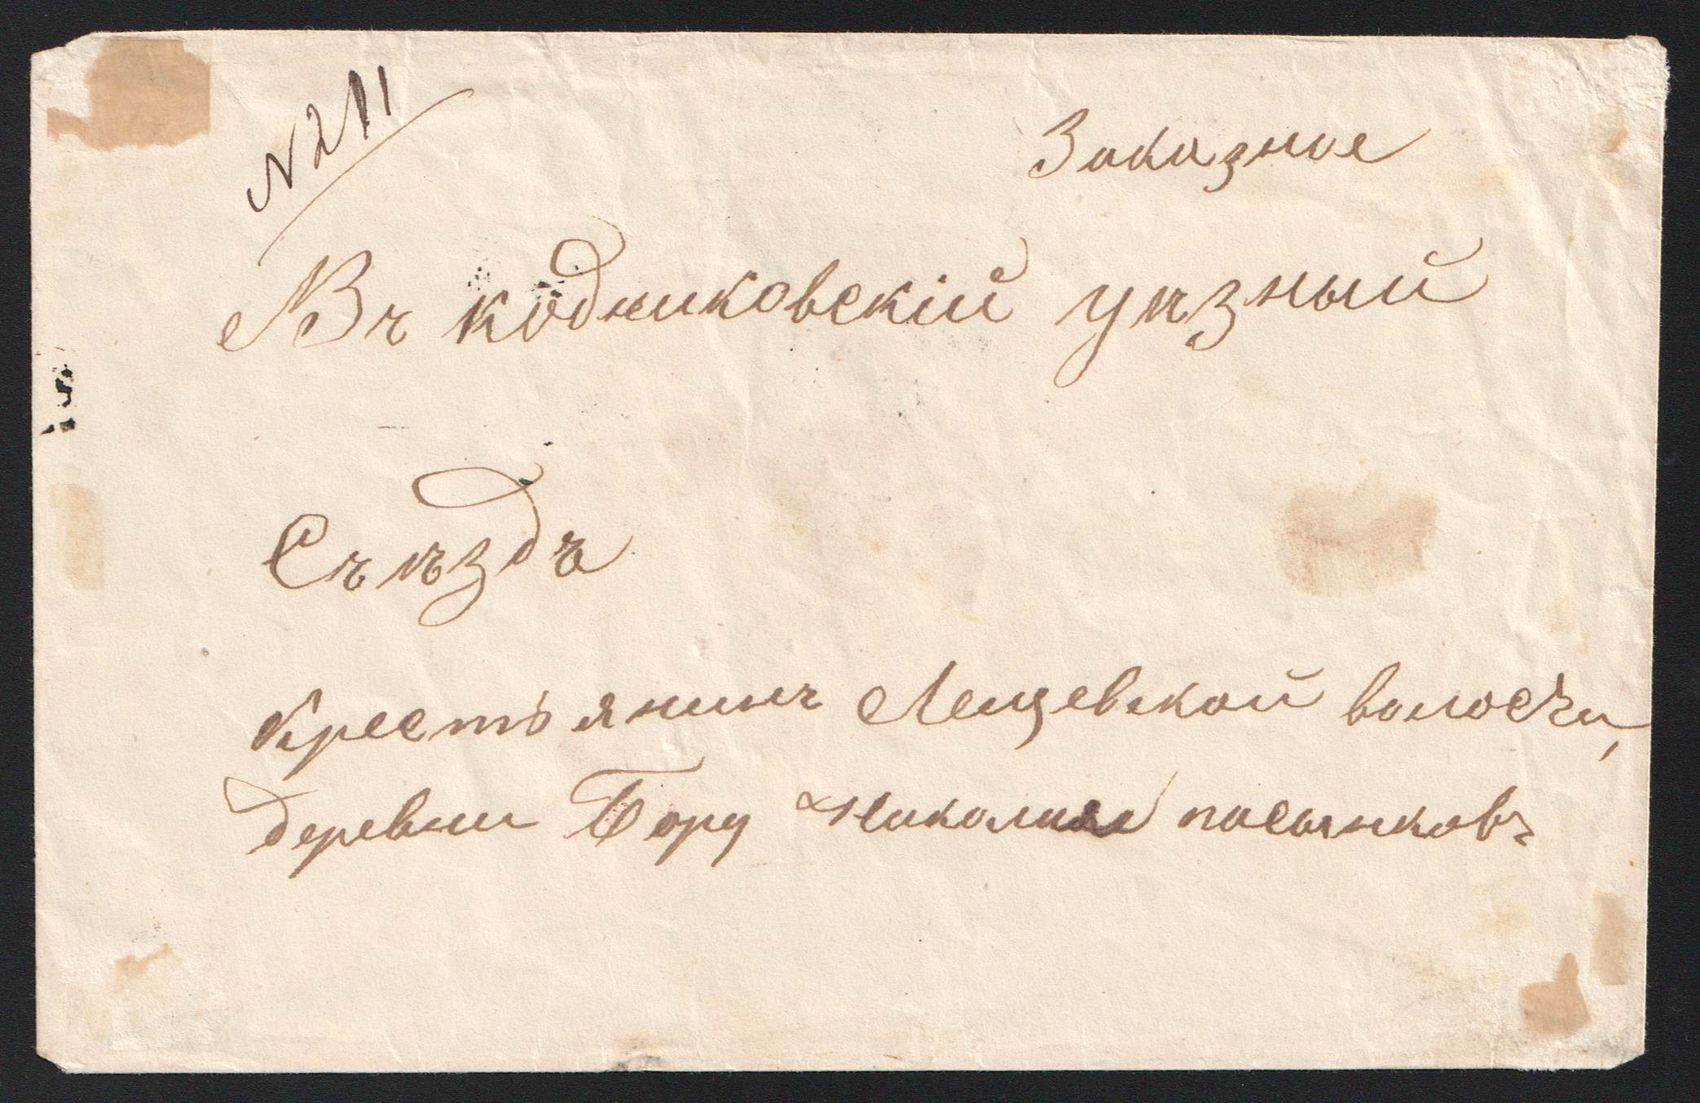 N 211
Заказное
Въ кодниковскій уѣзный
Съѣздъ
Крестьянинъ Лещевской волости,
деревни Бору Николай пасынковъ